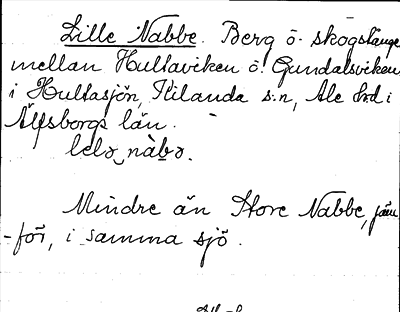 Lille Nabbe. Berg o. skogslänge
mellan Hultaviken o. Gundalsviken
i Hultasjön, Kilanda s:n, Ale hrd i
Älfsborgs län.
lelə nàbə.
Mindre än Store Nabbe, jäm-
-för, i samma sjö.